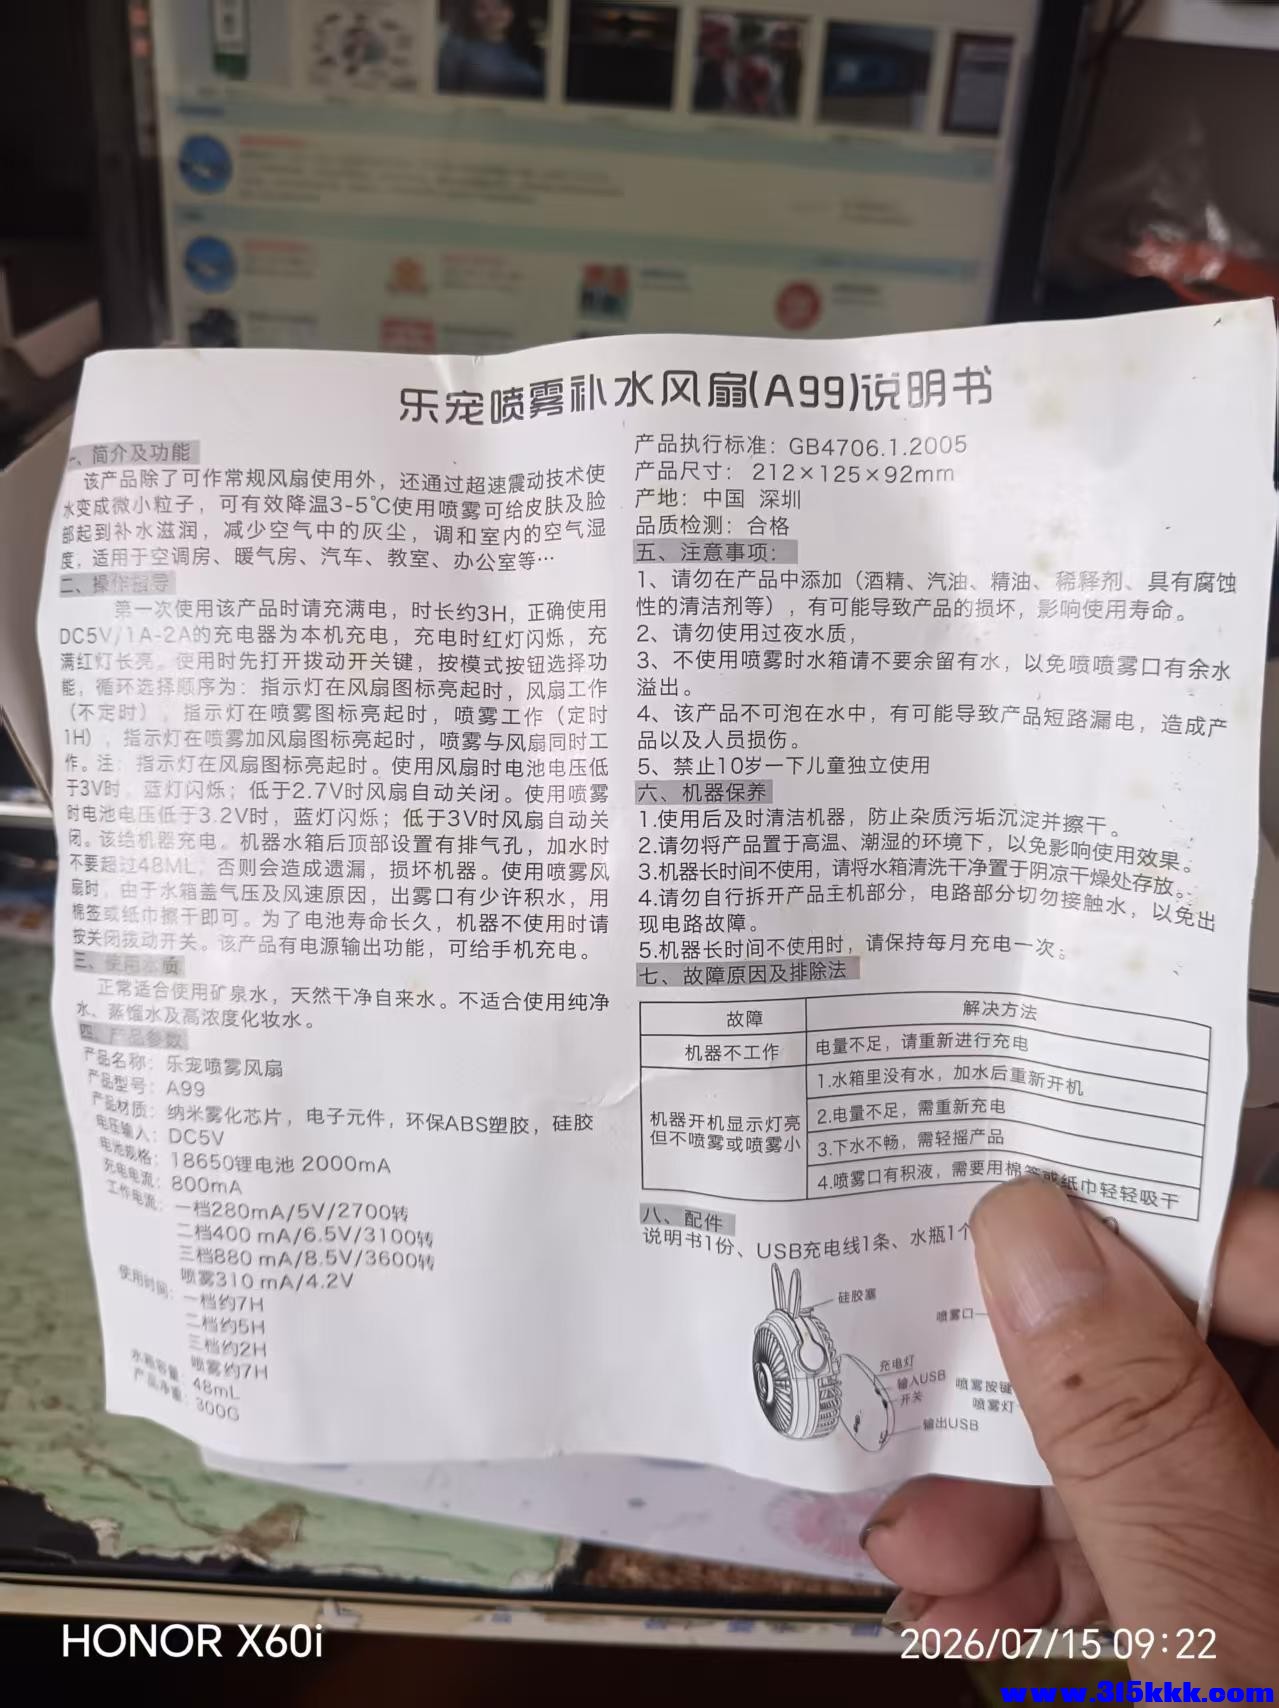 乐宠喷雾补水风扇(A99)说明书
一、简介及功能
该产品除了可作常规风扇使用外，还通过超速震动技术使
水变成微小粒子，可有效降温3-5℃使用喷雾可给皮肤及脸
部起到补水滋润，减少空气中的灰尘，调和室内的空气湿
度，适用于空调房、暖气房、汽车、教室、办公室等…
二、操作指导
第一次使用该产品时请充满电，时长约3H，正确使用
DC5V/1A-2A的充电器为本机充电，充电时红灯闪烁，充
满红灯长亮。使用时先打开拨动开关键，按模式按钮选择功
能，循环选择顺序为：指示灯在风扇图标亮起时，风扇工作
（不定时），指示灯在喷雾图标亮起时，喷雾工作（定时
1H），指示灯在喷雾加风扇图标亮起时，喷雾与风扇同时工
作。注：指示灯在风扇图标亮起时。使用风扇时电池电压低
于3V时，蓝灯闪烁；低于2.7V时风扇自动关闭。使用喷雾
时电池电压低于3.2V时，蓝灯闪烁；低于3V时风扇自动关
闭。该给机器充电。机器水箱后顶部设置有排气孔，加水时
不要超过48ML，否则会造成遗漏，损坏机器。使用喷雾风
扇时，由于水箱盖气压及风速原因，出雾口有少许积水，用
棉签或纸巾擦干即可。为了电池寿命长久，机器不使用时请
按关闭拨动开关。该产品有电源输出功能，可给手机充电。
三、使用水质
正常适合使用矿泉水，天然干净自来水。不适合使用纯净
水、蒸馏水及高浓度化妆水。
四、产品参数
产品名称：乐宠喷雾风扇
产品型号：A99
产品材质：纳米雾化芯片，电子元件，环保ABS塑胶，硅胶
电压输入：DC5V
电池规格：18650锂电池 2000mA
充电电流：800mA
工作电流：一档280mA/5V/2700转
二档400 mA/6.5V/3100转
三档880 mA/8.5V/3600转
喷雾310 mA/4.2V
使用时间：一档约7H
二档约5H
三档约2H
喷雾约7H
水箱容量：48mL
产品净重：300G
产品执行标准：GB4706.1.2005
产品尺寸：212×125×92mm
产地：中国 深圳
品质检测：合格
五、注意事项：
1、请勿在产品中添加（酒精、汽油、精油、稀释剂、具有腐蚀
性的清洁剂等），有可能导致产品的损坏，影响使用寿命。
2、请勿使用过夜水质，
3、不使用喷雾时水箱请不要余留有水，以免喷喷雾口有余水
溢出。
4、该产品不可泡在水中，有可能导致产品短路漏电，造成产
品以及人员损伤。
5、禁止10岁一下儿童独立使用
六、机器保养
1.使用后及时清洁机器，防止杂质污垢沉淀并擦干。
2.请勿将产品置于高温、潮湿的环境下，以免影响使用效果。
3.机器长时间不使用，请将水箱清洗干净置于阴凉干燥处存放。
4.请勿自行拆开产品主机部分，电路部分切勿接触水，以免出
现电路故障。
5.机器长时间不使用时，请保持每月充电一次。
七、故障原因及排除法
故障 解决方法
机器不工作 电量不足，请重新进行充电
机器开机显示灯亮
但不喷雾或喷雾小
1.水箱里没有水，加水后重新开机
2.电量不足，需重新充电
3.下水不畅，需轻摇产品
4.喷雾口有积液，需要用棉签或纸巾轻轻吸干
八、配件
说明书1份、USB充电线1条、水瓶1个
硅胶塞
喷雾口
充电灯
输入USB
开关
输出USB
喷雾按键
喷雾灯
HONOR X60i
2026/07/15 09:22
www.315kkk.com